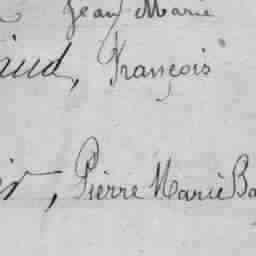 Jean Marie
aud, François
, Pierre Marie Ba